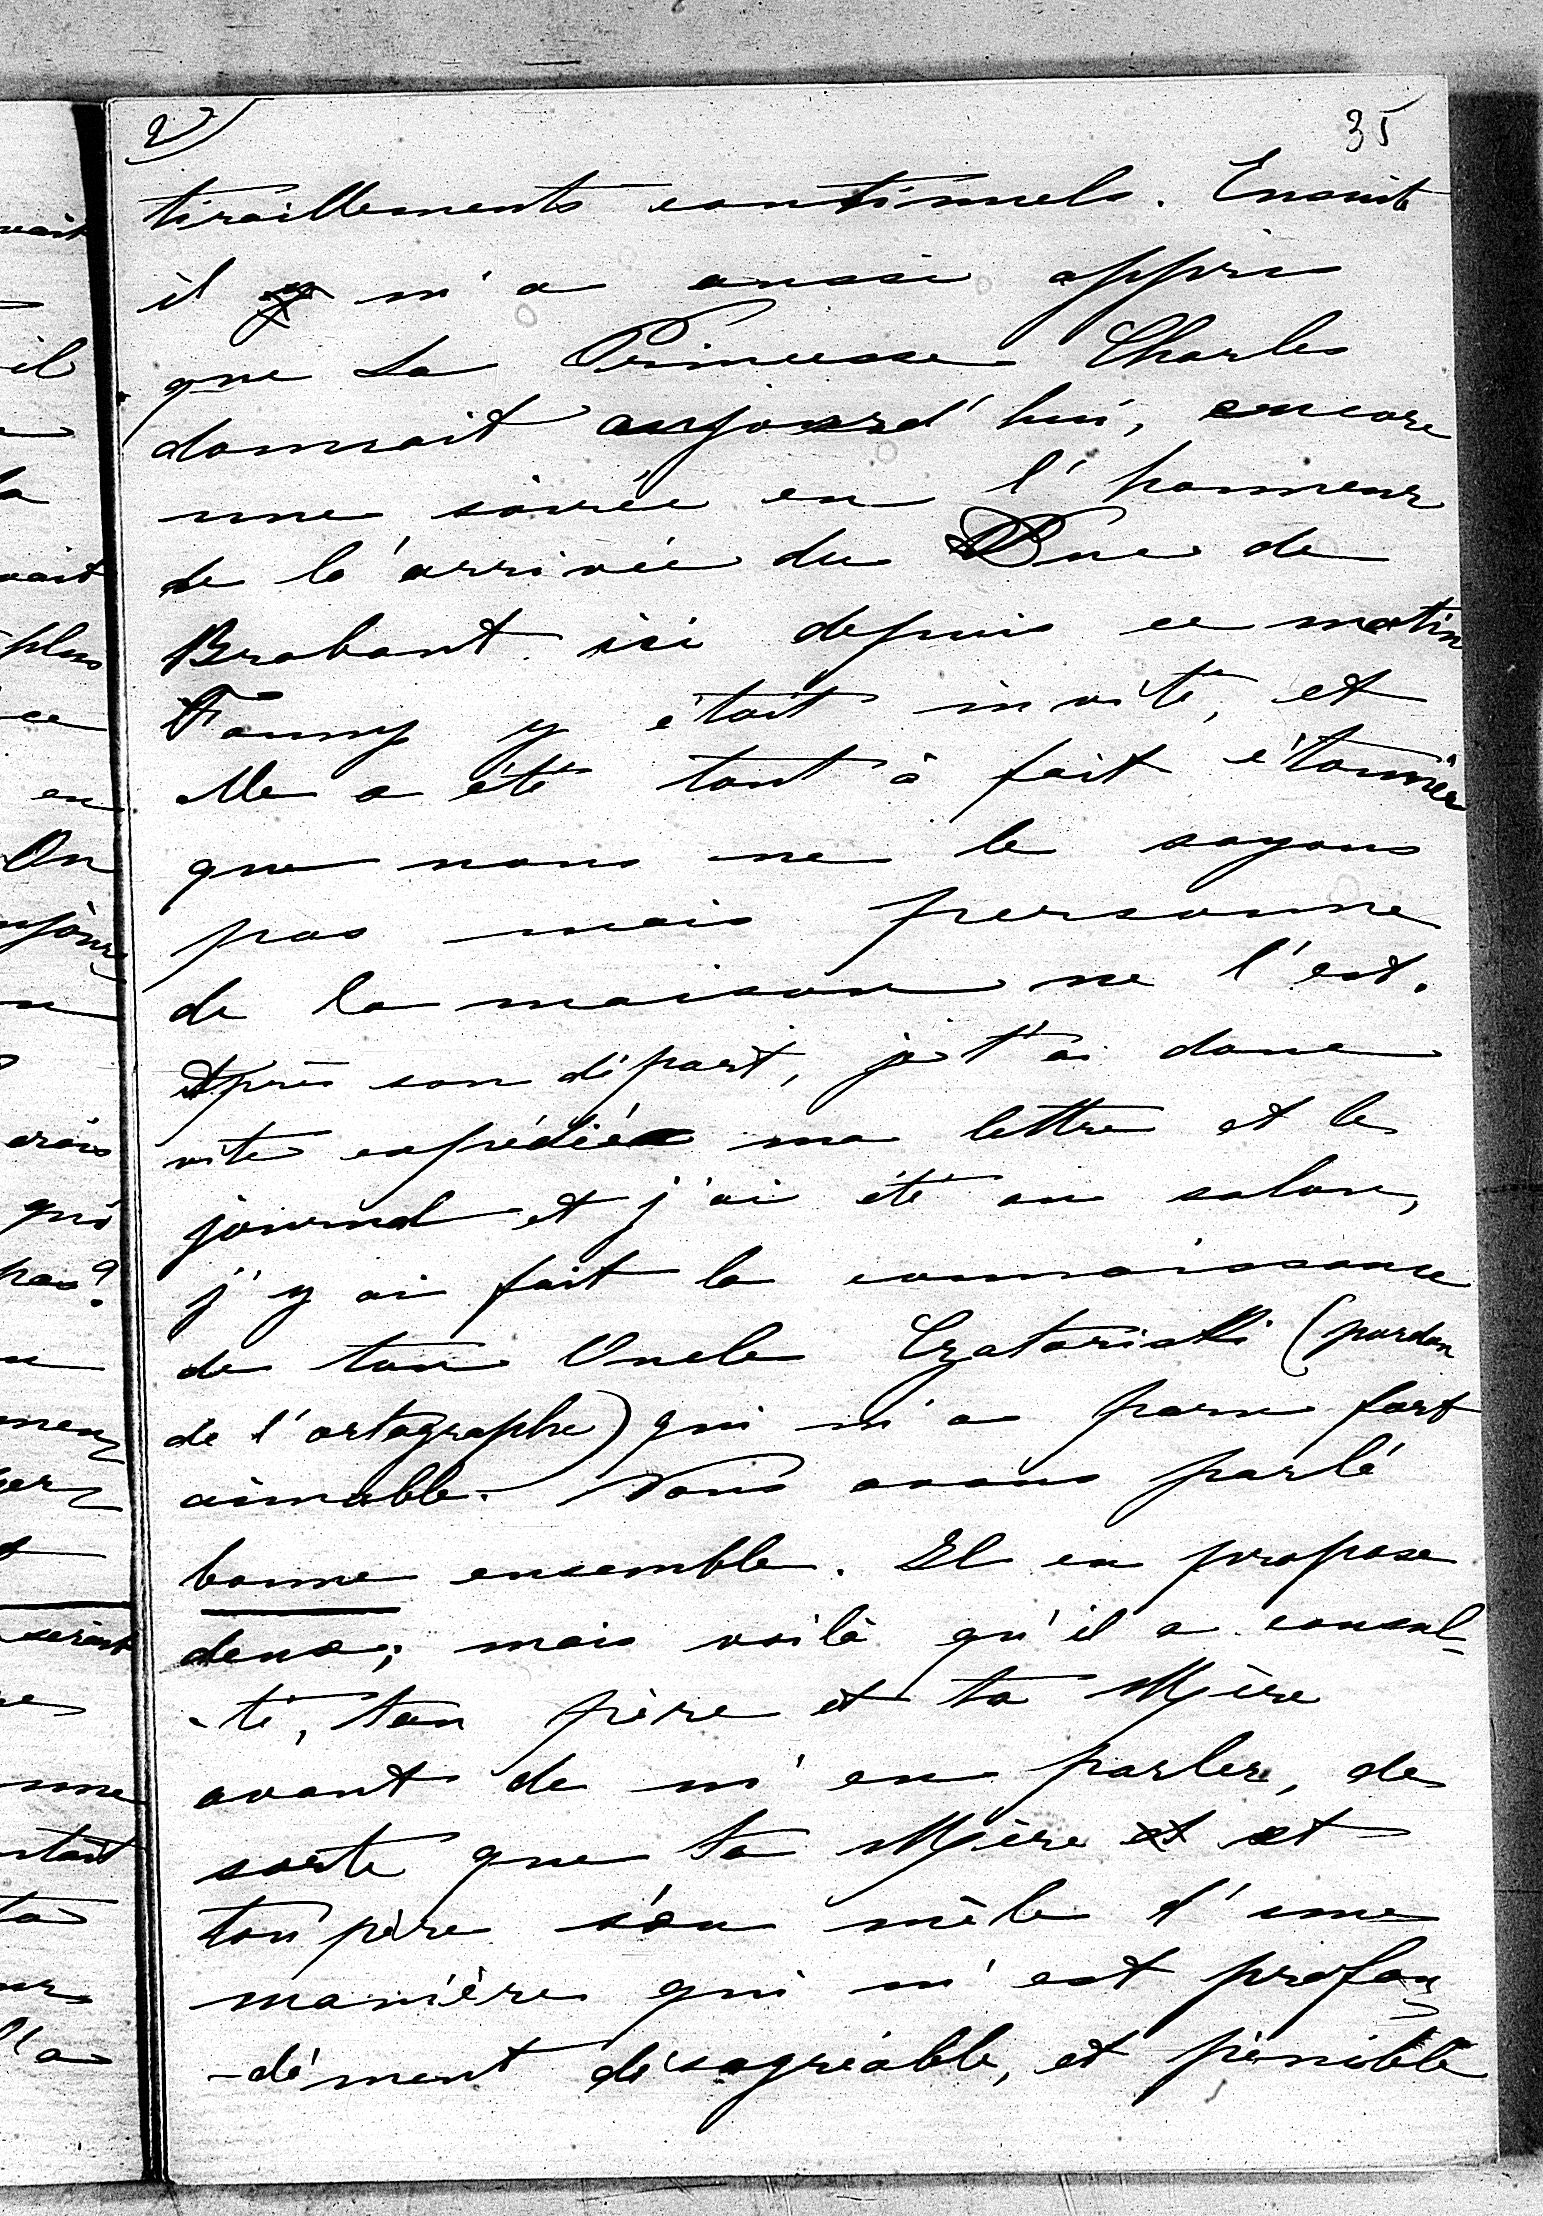 2)
35
tiraillements continuels. Ensuite
il m'a aussi appris
que la Princesse Charles
donnait aujourd'hui, encore
une soirée en l'honneur
de l'arrivée du Duc de
Brabant ici depuis ce matin
Fanny y était invité, et
elle a été tout à fait étonnée
que nous ne le soyons
pas mais personne
de la maison ne l'est.
Après son départ, je t'ai donc
vite expédié ma lettre et le
journal et j'ai été au salon,
j'y ai fait la connaissance
de ton Oncle (pardon
de l'ortographe) qui m'a paru fort
aimable. Nous avons parlé
bonne ensemble. Il en propose
deux; mais voilà qu'il a consul-
-té, ton père et ta Mère
avant de m'en parler, de
sorte que ta Mère et
ton père s'en mèle d'une
manière qui m'est profon
-dément désagréable, et pénible